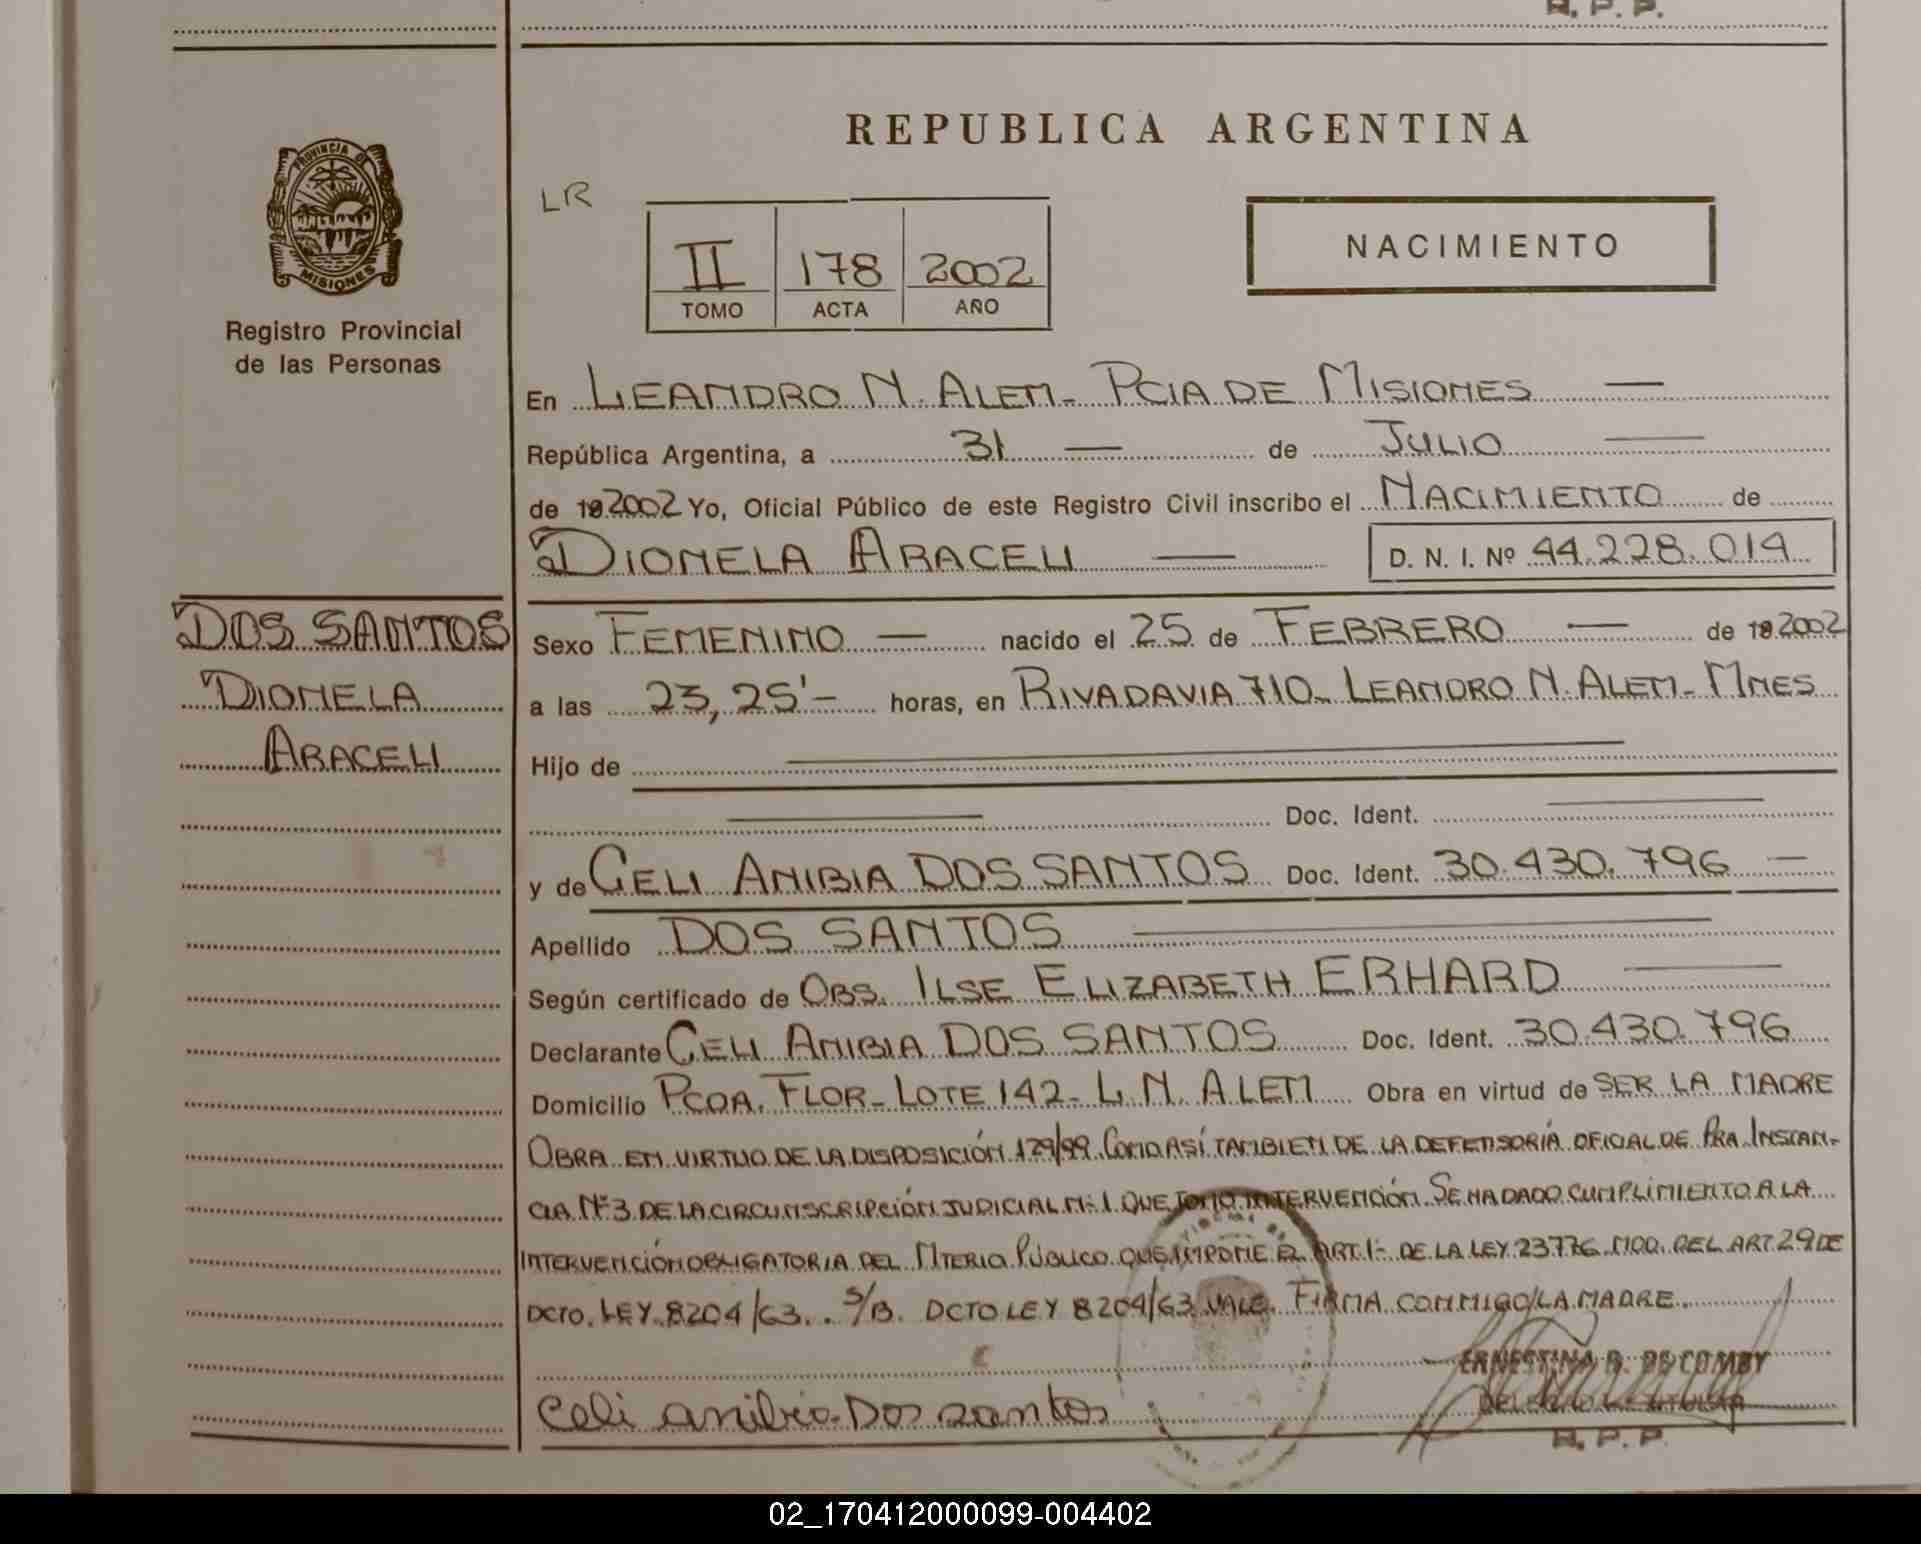 R. P. P.
REPUBLICA ARGENTINA
PROVINCIA DE
MISIONES
Registro Provincial
de las Personas
LR
NACIMIENTO
II 178 2002
TOMO ACTA AÑO
En LEANDRO N. ALEM- PCIA DE MISIONES —
República Argentina, a 31 — de JULIO —
de 192002 Yo, Oficial Público de este Registro Civil inscribo el NACIMIENTO de
DIONELA ARACELI — D. N. I. Nº 44.228.014
DOS SANTOS
DIONELA
ARACELI
Sexo FEMENINO — nacido el 25 de FEBRERO — de 192002
a las 23,25'- horas, en RIVADAVIA 710- LEANDRO N. ALEM- MNES
Hijo de —
— Doc. Ident. —
y de CELI ANIBIA DOS SANTOS Doc. Ident. 30.430.796 —
Apellido DOS SANTOS —
Según certificado de OBS. ILSE ELIZABETH ERHARD —
Declarante CELI ANIBIA DOS SANTOS Doc. Ident. 30.430.796
Domicilio PCDA. FLOR- LOTE 142- L. N. ALEM Obra en virtud de SER LA MADRE
OBRA EN VIRTUD DE LA DISPOSICIÓN 129/99. COMO ASÍ TAMBIEN DE LA DEFENSORÍA OFICIAL DE PRA. INSTAN-
CIA Nº 3 DE LA CIRCUNSCRIPCIÓN JUDICIAL Nº 1 QUE TOMO INTERVENCIÓN. SE HA DADO CUMPLIMIENTO A LA
INTERVENCIÓN OBLIGATORIA DEL MTERIO PÚBLICO QUE IMPONE EL ART. 1- DE LA LEY 23776 MOD. DEL ART. 29 DE
DCTO. LEY. 8204/63.. S/B. DCTO LEY 8204/63 VALE. FIRMA CONMIGO/LA MADRE.
Celi anibia Dos santos
ERNESTINA R. DE COMBY
DELEGADO TITULAR
R. P. P.
02_170412000099-004402